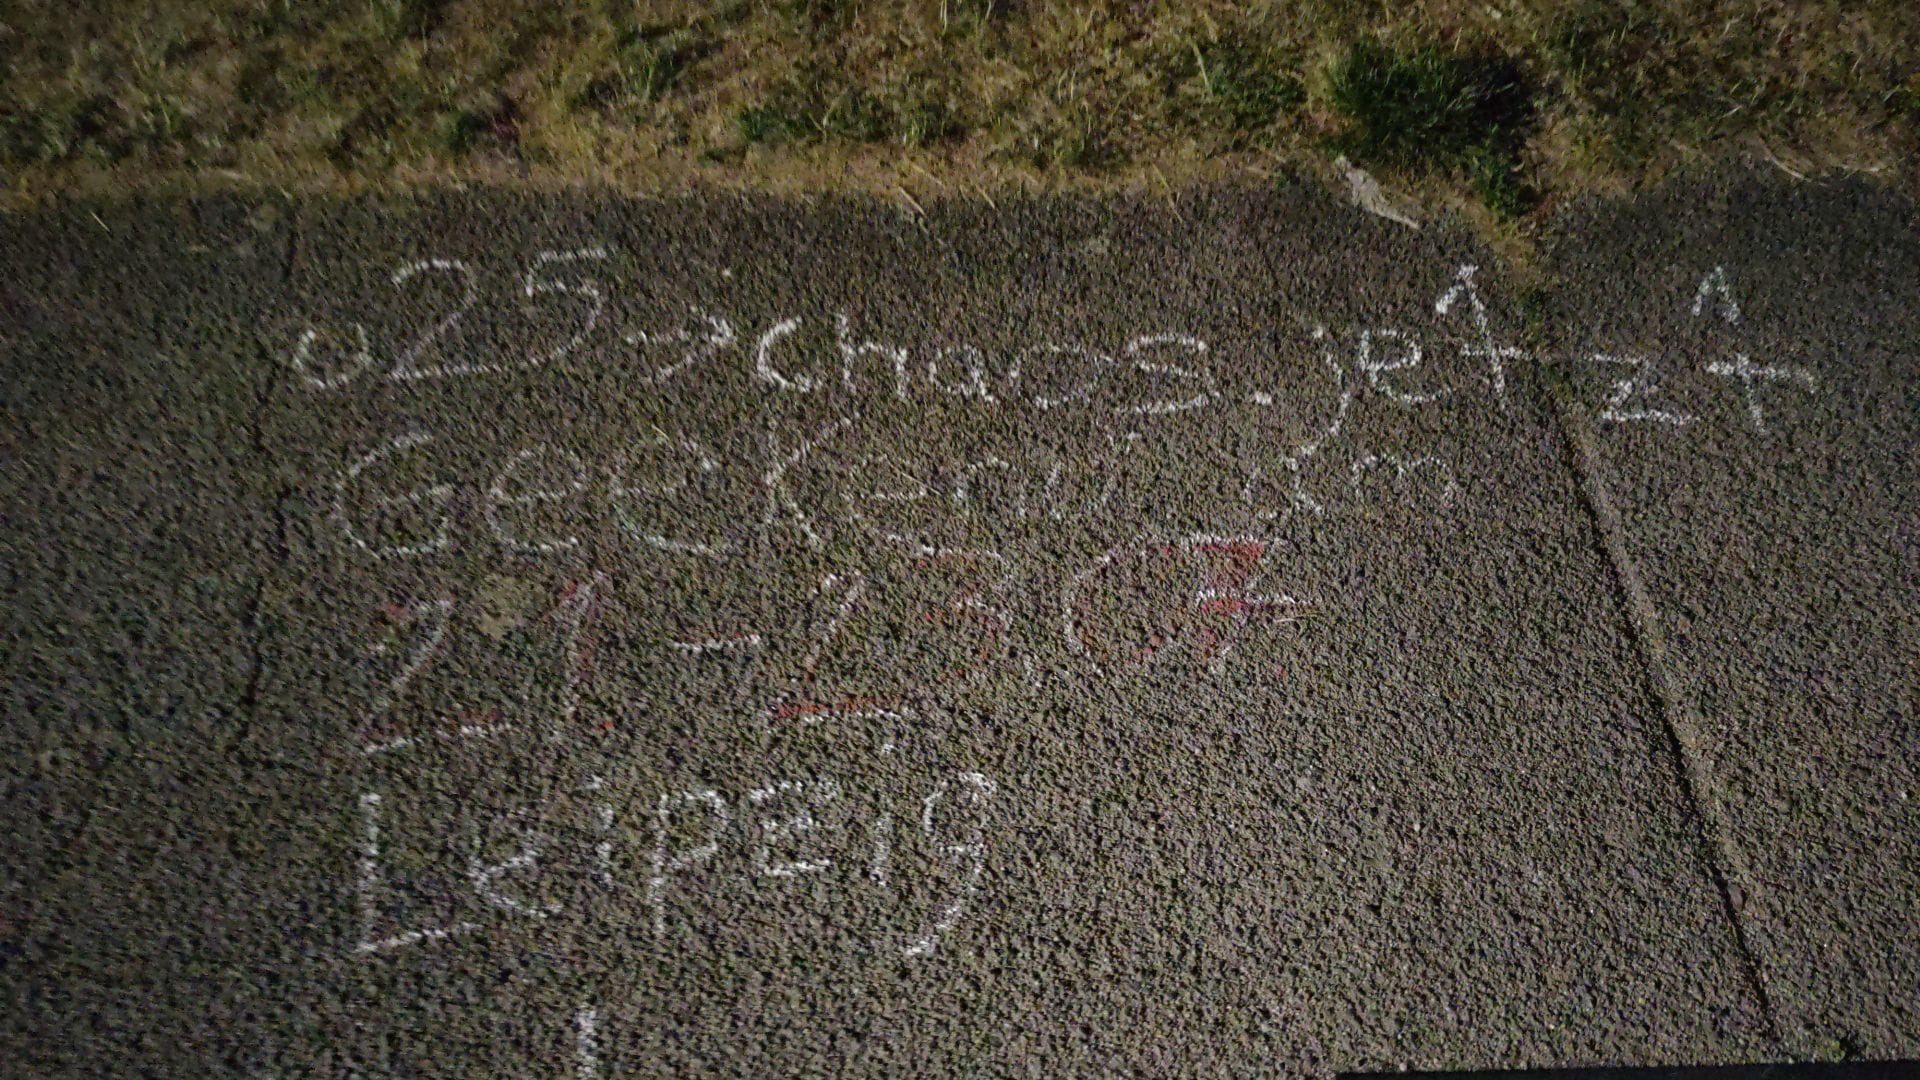 o25.chaos.jetzt
Geekend im
21-23.
Leipzig